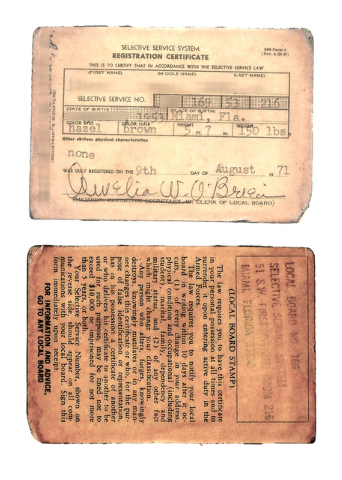 SELECTIVE SERVICE SYSTEM
REGISTRATION CERTIFICATE
THIS IS TO CERTIFY THAT IN ACCORDANCE WITH THE SELECTIVE SERVICE LAW
(FIRST NAME) (MIDDLE NAME) (LAST NAME)
SELECTIVE SERVICE NO.
169 53 216
(DATE OF BIRTH) PLACE OF BIRTH
Miami, Fla.
COLOR EYES COLOR HAIR HEIGHT WEIGHT
hazel brown 5 7 150 lbs.
Other obvious physical characteristics
none
WAS DULY REGISTERED ON THE 9th DAY OF August 71
Aurelia W. O'Brien
CLERK OF LOCAL BOARD)
LOCAL BOARD
SELECTIVE
51 S.W. FIRST
MIAMI, FLORIDA
(LOCAL BOARD STAMP)
The law requires you to have this certificate
in your personal possession at all times and to
surrender it upon entering active duty in the
Armed Forces.
The law requires you to notify your local
board in writing within 10 days after it oc-
curs, (1) of every change in your address,
physical condition and occupational (including
student), marital, family, dependency and
military status, and (2) of any other fact
which might change your classification.
Any person who alters, forges, knowingly
destroys, knowingly mutilates or in any man-
ner changes this certificate or who, for the pur-
pose of false identification or representation,
has in his possession a certificate of another
or who delivers his certificate to another to be
used for such purpose, may be fined not to
exceed $10,000 or imprisoned for not more
than 5 years, or both.
Your Selective Service Number, shown on
the reverse side, should appear on all com-
munications with your local board. Sign this
form immediately upon receipt.
FOR INFORMATION AND ADVICE,
GO TO ANY LOCAL BOARD